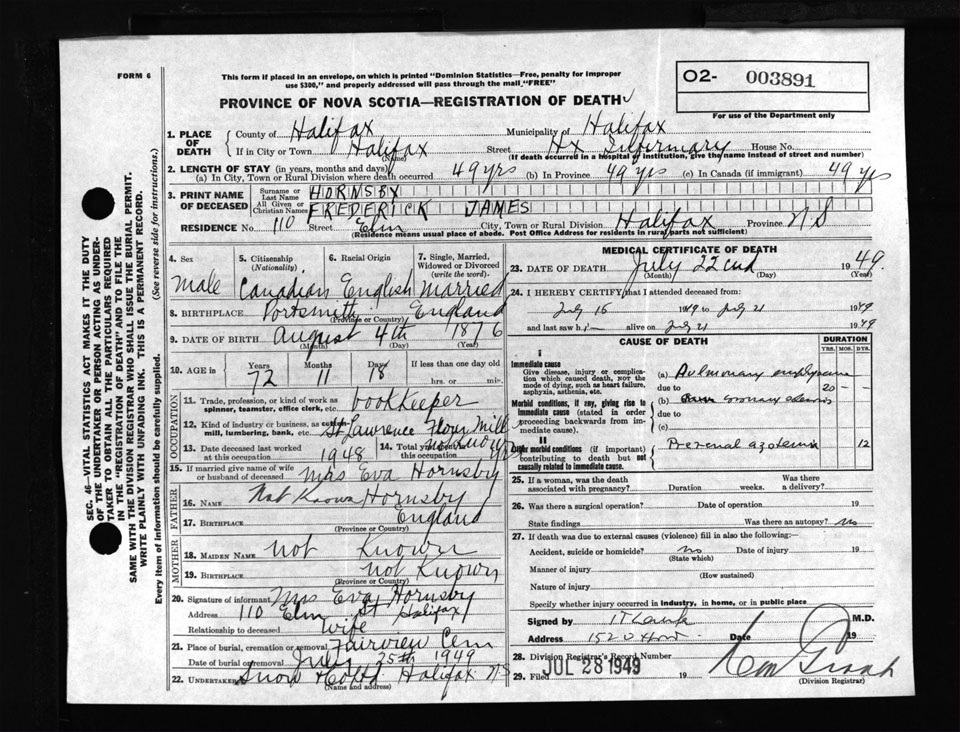 FORM 6
This form if placed in an envelope, on which is printed "Dominion Statistics—Free, penalty for improper
use $300," and properly addressed will pass through the mail "FREE"
O2- 003891
PROVINCE OF NOVA SCOTIA—REGISTRATION OF DEATH
For use of the Department only
SEC. 46—VITAL STATISTICS ACT MAKES IT THE DUTY
OF THE UNDERTAKER OR PERSON ACTING AS UNDER-
TAKER TO OBTAIN ALL THE PARTICULARS REQUIRED
IN THE "REGISTRATION OF DEATH" AND TO FILE THE
SAME WITH THE DIVISION REGISTRAR WHO SHALL ISSUE THE BURIAL PERMIT.
WRITE PLAINLY WITH UNFADING INK. THIS IS A PERMANENT RECORD.
Every item of information should be carefully supplied. (See reverse side for instructions.)
1. PLACE OF DEATH County of Halifax Municipality of Halifax
If in City or Town Halifax (Name) Street Hx Infirmary House No.
(If death occurred in a Hospital or Institution, give the name instead of street and number)
2. LENGTH OF STAY (in years, months and days)
(a) In City, Town or Rural Division where death occurred 49 yrs (b) In Province 49 yrs (c) In Canada (if immigrant) 49 yrs
3. PRINT NAME OF DECEASED Surname or Last Name HORNSBY
All Given or Christian Names FREDERICK JAMES
RESIDENCE No. 110 Street Elm City, Town or Rural Division Halifax Province N S
(Residence means usual place of abode. Post Office Address for residents in rural parts not sufficient)
4. Sex 5. Citizenship (Nationality) 6. Racial Origin 7. Single, Married, Widowed or Divorced (write the word)
Male Canadian English Married
8. BIRTHPLACE Portsmith England
(Province or Country)
9. DATE OF BIRTH August 4th 1876
(Month) (Day) (Year)
10. AGE in Years Months Days If less than one day old
72 11 18 hrs. or min.
OCCUPATION
11. Trade, profession, or kind of work as spinner, teamster, office clerk, etc. bookkeeper
12. Kind of industry or business, as cotton-mill, lumbering, bank, etc. St Lawrence Flour Mill
13. Date deceased last worked at this occupation 1948 14. Total years in this occupation not Known
15. If married give name of wife or husband of deceased Mrs Eva Hornsby
FATHER
16. NAME Not Known Hornsby
17. BIRTHPLACE England
(Province or Country)
MOTHER
18. MAIDEN NAME not Known
19. BIRTHPLACE not Known
(Province or Country)
20. Signature of informant Mrs Eva Hornsby
Address 110 Elm St Halifax
Relationship to deceased wife
21. Place of burial, cremation or removal Fairview Cem
Date of burial or removal July 25th 1949
22. UNDERTAKER Snow & Co Ltd Halifax NS
(Name and address)
MEDICAL CERTIFICATE OF DEATH
23. DATE OF DEATH July 22nd 1949
(Month) (Day) (Year)
24. I HEREBY CERTIFY that I attended deceased from:
July 15 1949 to July 21 1949
and last saw him alive on July 21 1949
CAUSE OF DEATH DURATION
YRS. MOS. DYS.
I
Immediate cause
Give disease, injury or complication which caused death, not the mode of dying, such as heart failure, asphyxia, asthenia, etc.
(a) Pulmonary emphysema
due to 20 - -
Morbid conditions, if any, giving rise to immediate cause (stated in order proceeding backwards from immediate cause).
(b) coronary
due to
(c)
II
Other morbid conditions (if important) contributing to death but not causally related to immediate cause.
Prerenal azotemia 12
25. If a woman, was the death associated with pregnancy? Duration weeks. Was there a delivery?
26. Was there a surgical operation? Date of operation 19
State findings Was there an autopsy? no
27. If death was due to external causes (violence) fill in also the following:—
Accident, suicide or homicide? no Date of injury 19
(State which)
Manner of injury
(How sustained)
Nature of injury
Specify whether injury occurred in industry, in home, or in public place
Signed by M.D.
Address Date 19
28. Division Registrar's Record Number
JUL 28 1949
29. Filed 19
(Division Registrar)